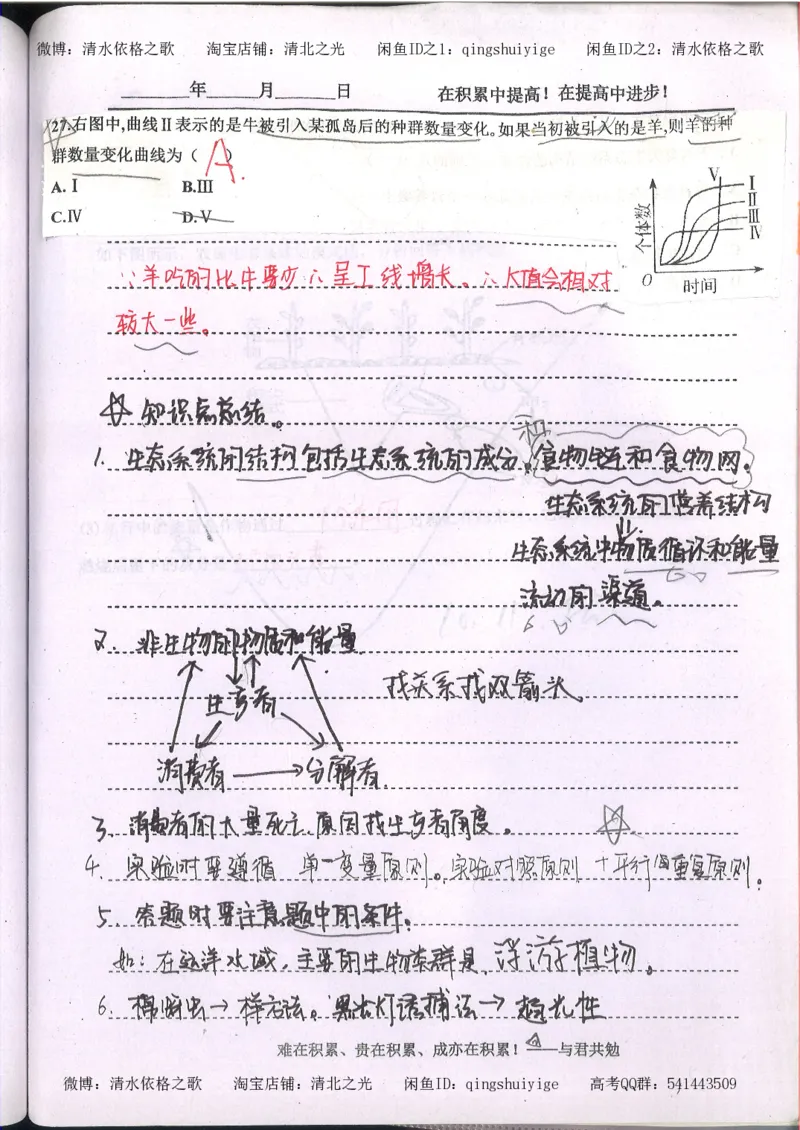 微博：清水依格之歌 淘宝店铺：清北之光 闲鱼ID之1：qingshuiyige 闲鱼ID之2：清水依格之歌
______年______月______日 在积累中提高！在提高中进步！
27.右图中,曲线Ⅱ表示的是牛被引入某孤岛后的种群数量变化。如果当初被引入的是羊,则羊的种
群数量变化曲线为（ A. ）
A.Ⅰ B.Ⅲ
C.Ⅳ D.Ⅴ
个体数
Ⅴ
Ⅰ
Ⅱ
Ⅲ
Ⅳ
O 时间
∵羊吃的比牛要少∴呈工线增长。∴K值会相对
较大一些。
知识点总结。
1. 生态系统的结构包括生态系统的成分。食物链和食物网。
和
生态系统的营养结构
生态系统中物质循环和能量
流动的渠道。
2. 非生物的物质和能量
生产者 找关系找双箭头
消费者 分解者
3. 消费者的大量死亡原因找生产者角度。
4. 实验时要遵循 单一变量原则。实验对照原则 十平行重复原则。
5. 答题时要注意题中的条件。
如：在远洋水域，主要的生物类群是 浮游植物。
6. 样方法。黑光灯诱捕法→趋光性
难在积累、贵在积累、成亦在积累！——与君共勉
微博：清水依格之歌 淘宝店铺：清北之光 闲鱼ID：qingshuiyige 高考QQ群：541443509